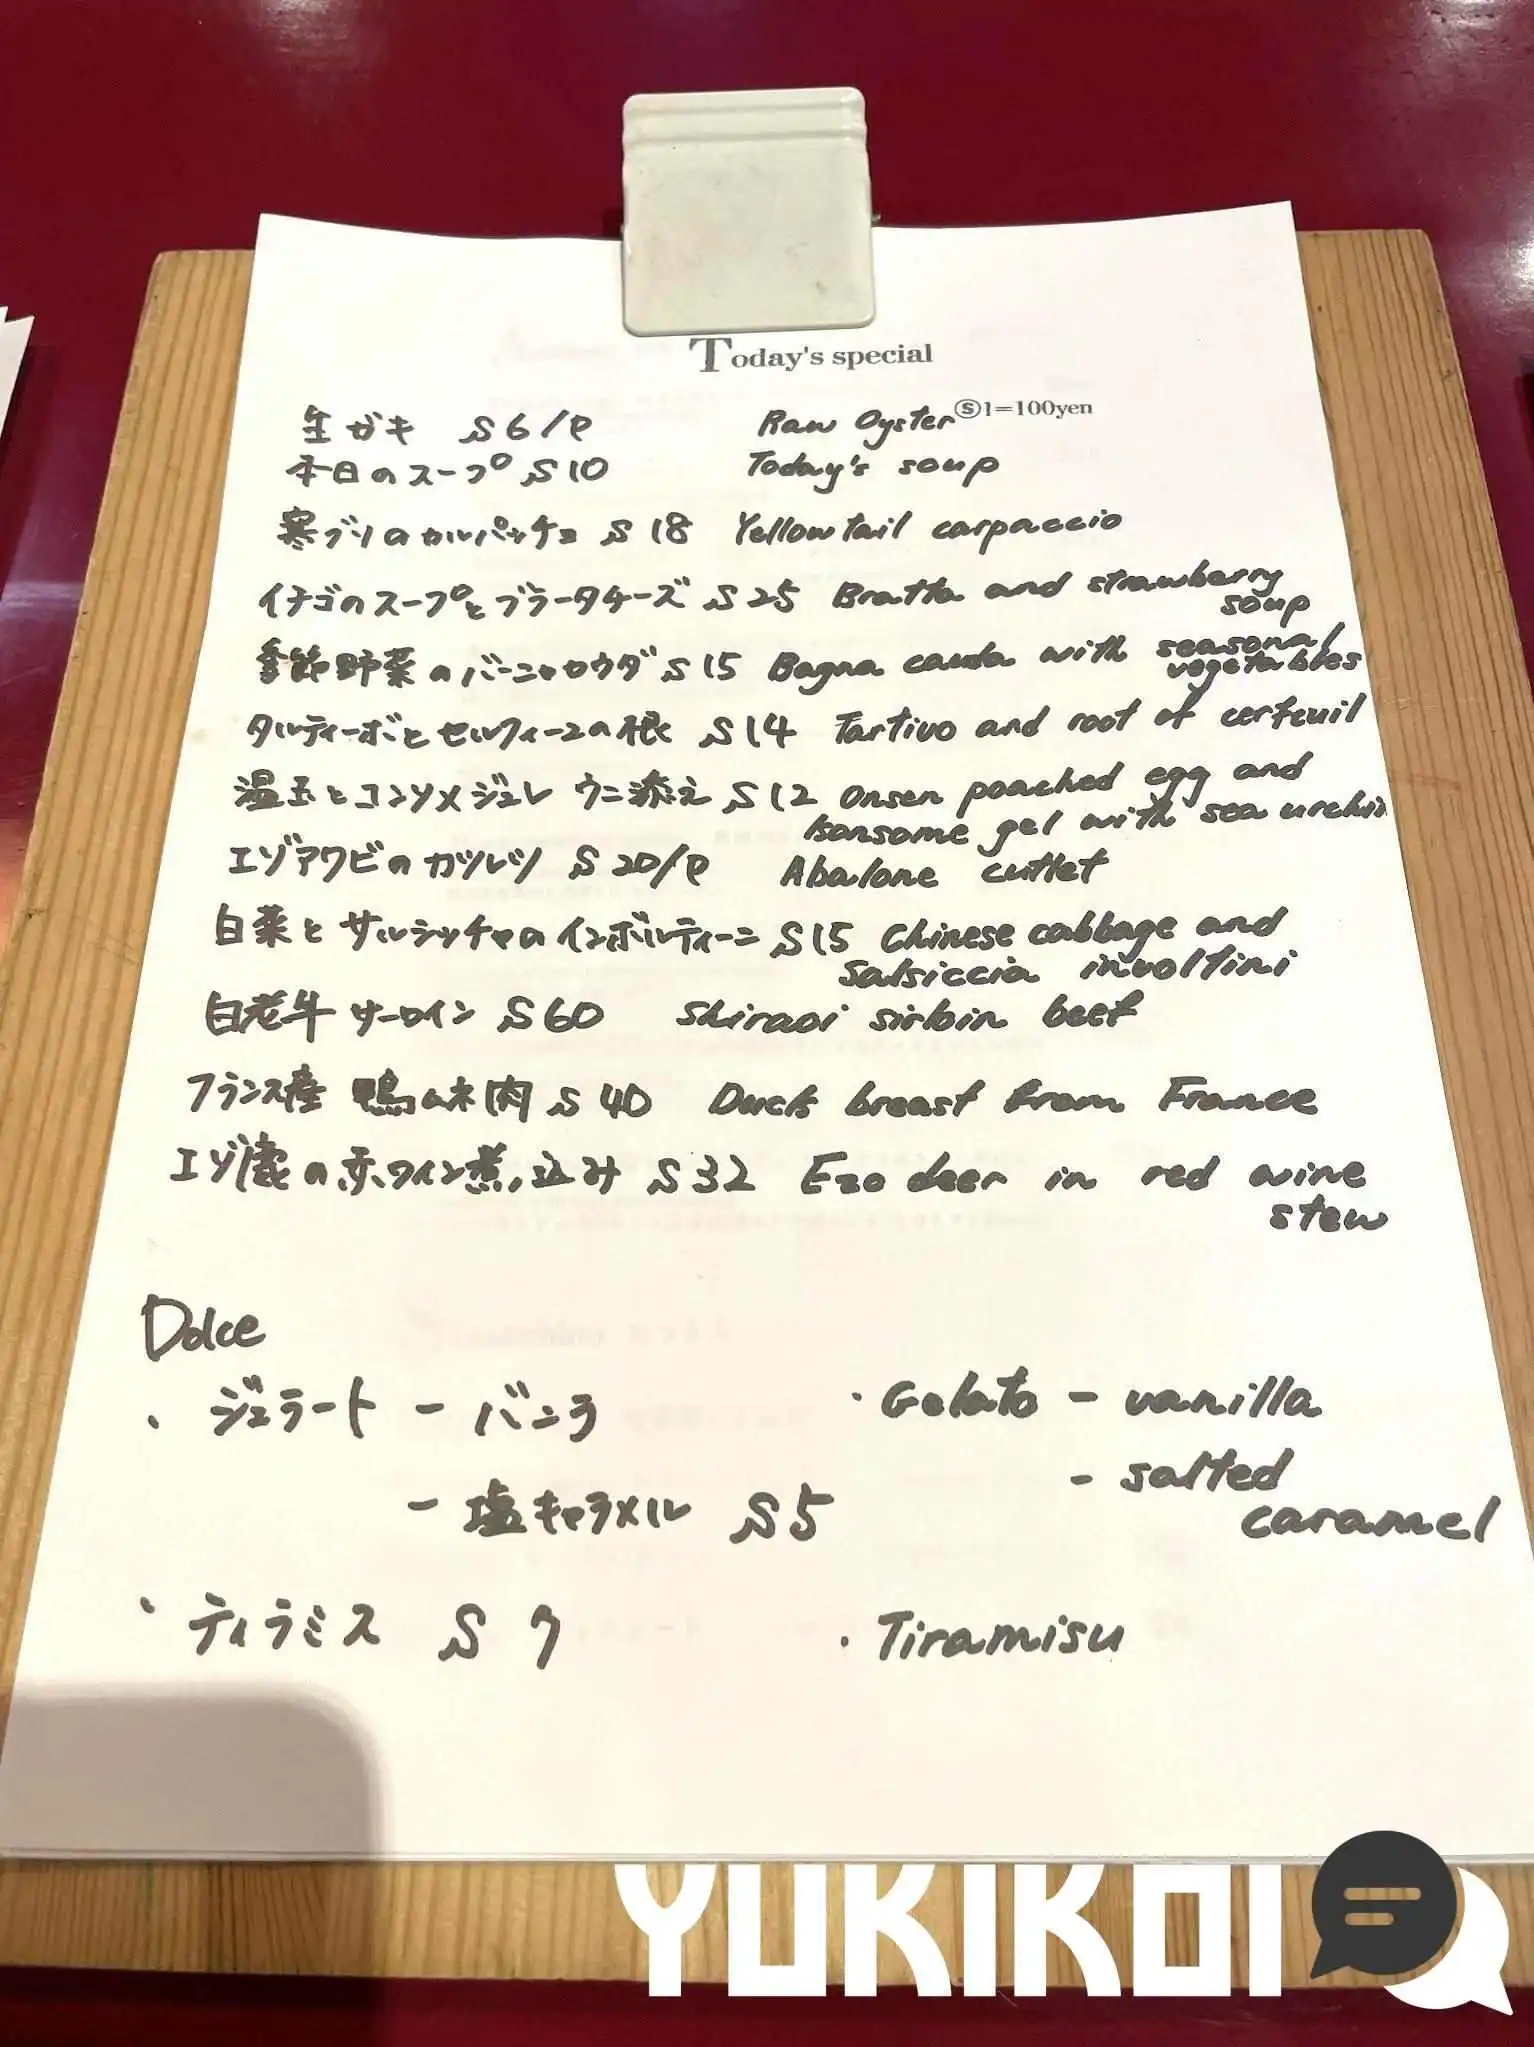 Today's special
Ⓢ1=100yen
生ガキ S 6/P Raw Oyster
本日のスープ S 10 Today's soup
寒ブリのカルパッチョ S 18 Yellowtail carpaccio
イチゴのスープとブラータチーズ S 25 Bratta and strawberry
soup
季節野菜のバーニャカウダ S 15 Bagna cauda with seasonal
vegetables
タルティーボとセルフィーユの根 S 14 Tartivo and root of cerfeuil
温玉とコンソメジュレ ウニ添え S 12 Onsen poached egg and
konsome gel with sea urchin
エゾアワビのカツレツ S 20/P Abalone cutlet
白菜とサルシッチャのインボルティーニ S 15 Chinese cabbage and
salsiccia involtini
白老牛 サーロイン S 60 Shiraoi sirloin beef
フランス産 鴨ムネ肉 S 40 Duck breast from France
エゾ鹿の赤ワイン煮込み S 32 Ezo deer in red wine
stew
Dolce
・ジェラート - バニラ ・Gelato - vanilla
- 塩キャラメル S 5 - salted
caramel
・ティラミス S 7 ・Tiramisu
YUKIKOI